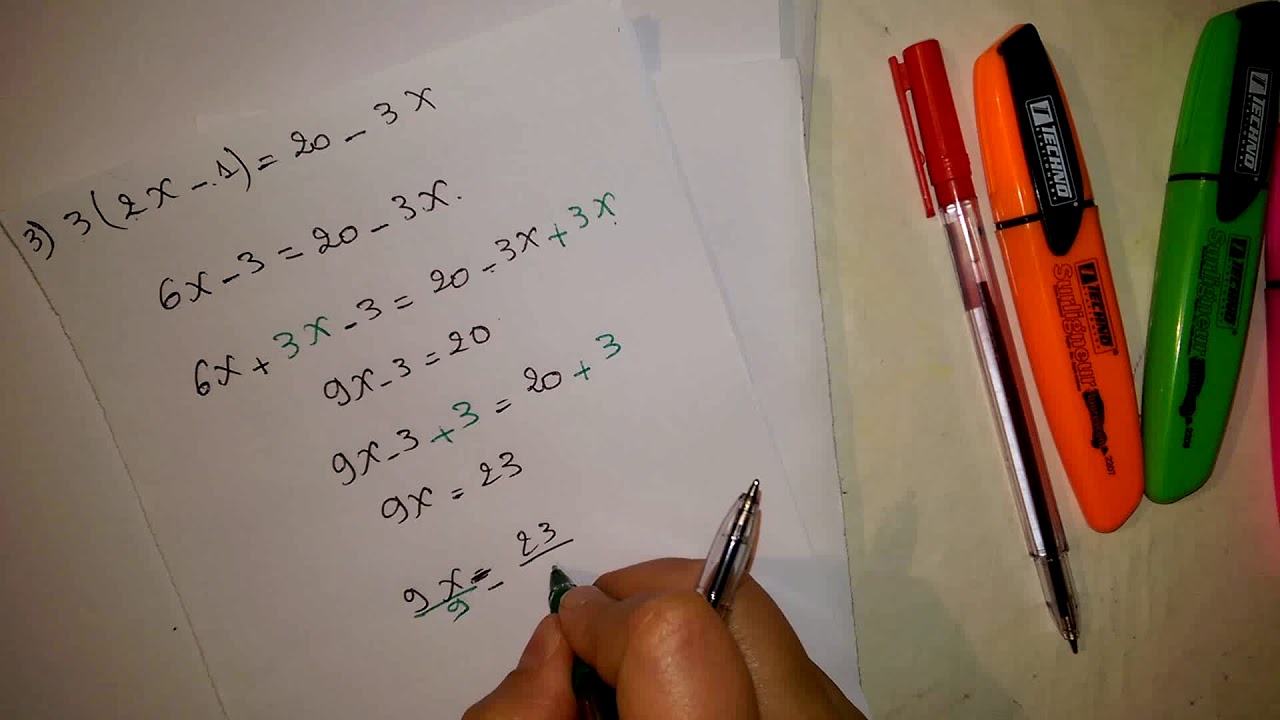 3) 3(2x-1) = 20 - 3x
6x - 3 = 20 - 3x.
6x + 3x - 3 = 20 - 3x + 3x
9x - 3 = 20
9x - 3 + 3 = 20 + 3
9x = 23
9x/9 = 23
TECHNO
TECHNO
Surligneur
TECHNO
TECHNO
Surligneur